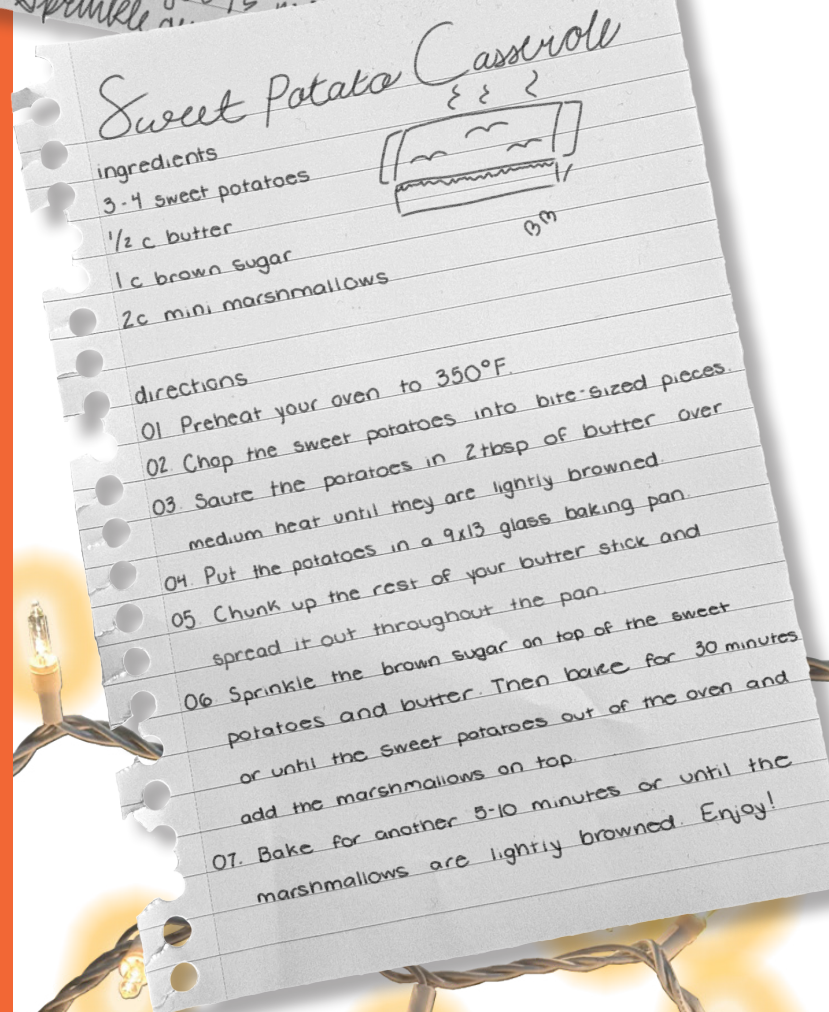 Sprinkle
Sweet Potato Casserole
ingredients
3-4 sweet potatoes
1/2 c butter
1 c brown sugar
2c mini marshmallows
directions
01 Preheat your oven to 350°F.
02. Chop the sweet potatoes into bite-sized pieces.
03. Saute the potatoes in 2 tbsp of butter over
medium heat until they are lightly browned.
04. Put the potatoes in a 9x13 glass baking pan.
05. Chunk up the rest of your butter stick and
spread it out throughout the pan.
06. Sprinkle the brown sugar on top of the sweet
potatoes and butter. Then bake for 30 minutes
or until the sweet potatoes out of the oven and
add the marshmallows on top.
07. Bake for another 5-10 minutes or until the
marshmallows are lightly browned. Enjoy!